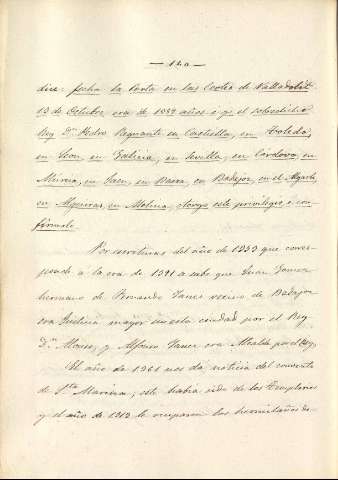 — 140 —
dice fecha la Carta en las Cortes de Valladolid
13 de Octubre, era de 1389 años é yo el sobredicho
Rey Dn Pedro Regnante en Castiella, en Toledo,
en Leon, en Galicia, en Sevilla, en Córdova, en
Murcia, en Jaen, en Baeza, en Badajoz, en el Algarbe,
en Algeciras, en Molina, otorgo este privilegio, é con-
firmolo.
Por escrituras del año de 1353 que corres-
ponde á la era de 1391 se sabe que Juan Gomez
hermano de Fernando Yanez vecino de Badajoz
era Justicia mayor en esta ciudad por el Rey
Dn Alonso, y Alfonso Yanez era Alcalde por el Rey.
El año de 1361 nos da noticia del convento
de Sta Marina; este habia sido de los Templarios
y el año de 1312 le ocuparon los hermitaños de-